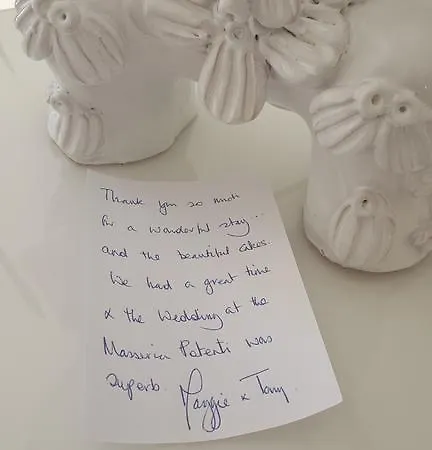 Thank you so much
for a wonderful stay..
and the beautiful cakes.
We had a great time
& the Wedding at the
Masseria Potenti was
superb. Maggie x Tony.